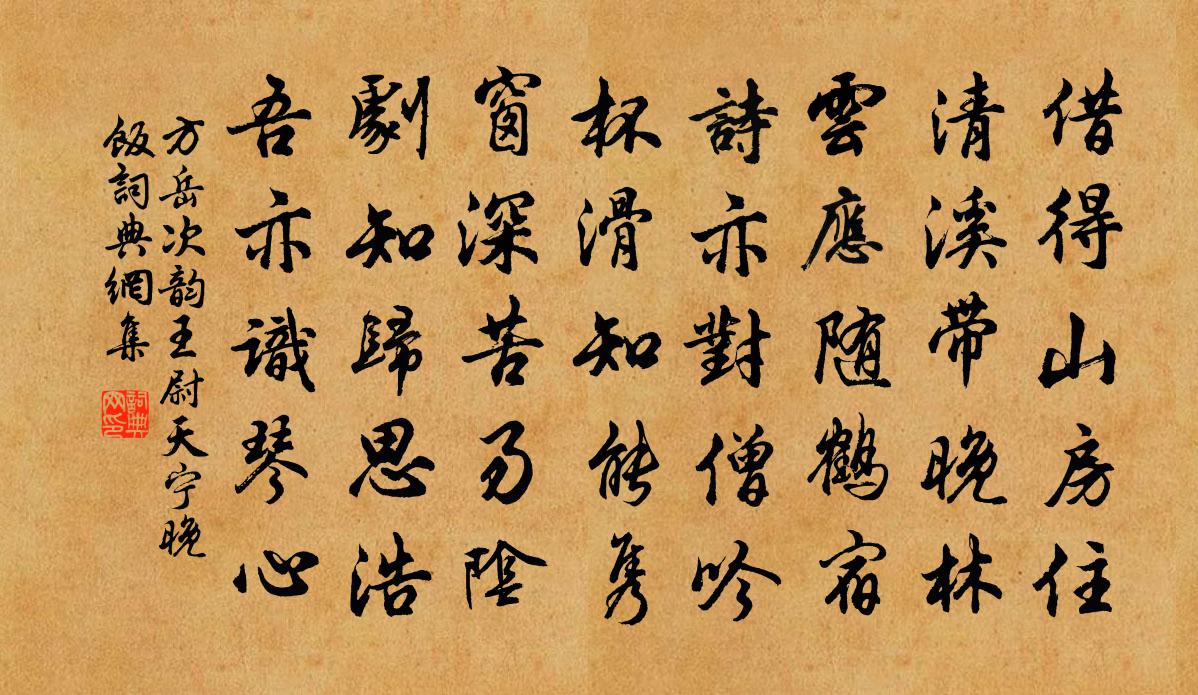 借得山房住
清溪带晚林
雲應随鶴宿
詩亦對僧吟
杯滑知能隽
窗深苦易陰
劇知歸思浩
吾亦識琴心
方岳次韵王尉天宁晚
飯詞典網集
詞典
网印